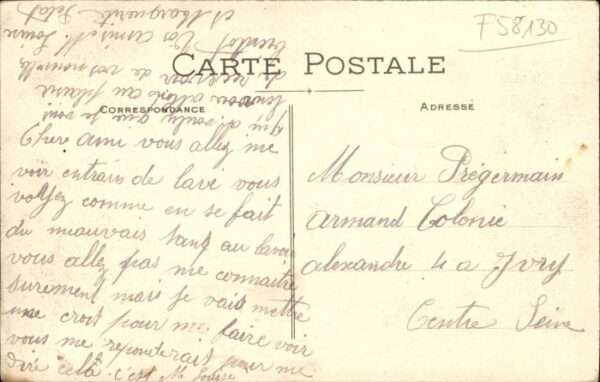 F58130
CARTE POSTALE
CORRESPONDANCE
ADRESSE
Cher ami vous allez me
voir entrain de lavé vous
voyez comme en se fait
du mauvais sang au lavoir
vous allez pas me connaitre
surement mais je vais mettre
une croit pour me faire voir
vous me reponderait pour me
dire cela c'est M. Louise
qui a voulu que je vous
au plaisir
de recevoir de vos nouvelle
bientot Vos amis M. Louise
et Marguerite
Monsieur Prégermain
Armand Colonie
Alexandre 4 a Ivry
Centre Seine